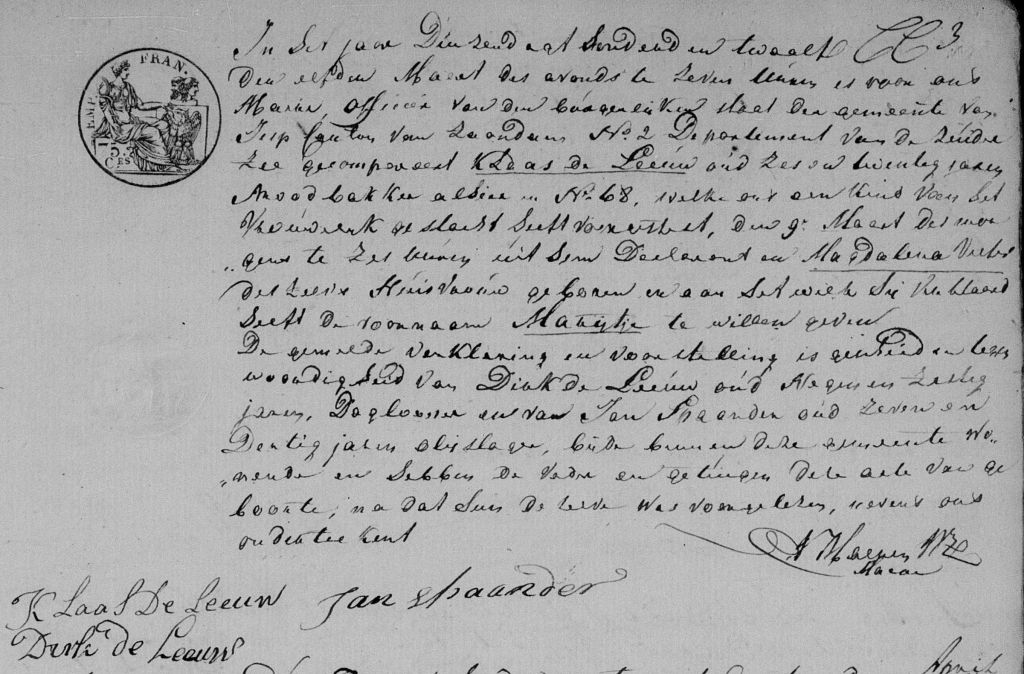 In het jaar Duizend agt honderd en twaalf
EMP. FRAN.
den elfden Maart des avonds te zeven uuren is voor ons
Maire officier van den burgerlijken staat der gemeente van
Jisp Canton van Zaandam No. 2 Departement van de Zuider
zee gecompareert Klaas de Leeuw oud zes en twinteg jaren
Broodbakker alhier in No. 68, welke ons een kind van het
Vrouwelik geslacht heeft voorgestelt, den 9e Maart des mor
gens te zes uuren uit hem Declarant en Magdalena
deszelvs Huisvrouw geboren en aan het welk hij verklaard
heeft de voornaam Marijtje te willen geven
De gemelde verklaring en voorstelling is geschied in tegen
woordigheid van Dirk de Leeuw oud Negen en zesteg
jaren, Daglooner en van Jan Spaander oud zeven en
Dertig jaren olijslager, beide binnen deze gemeente wo
nende en hebben de vader en getuigen deze acte van ge
boorte, na dat hun dezelve was voorgelezen, nevens ons
ondertee kent
Maire
Klaas De Leeuw Jan Spaander
Dirk de Leeuw
April